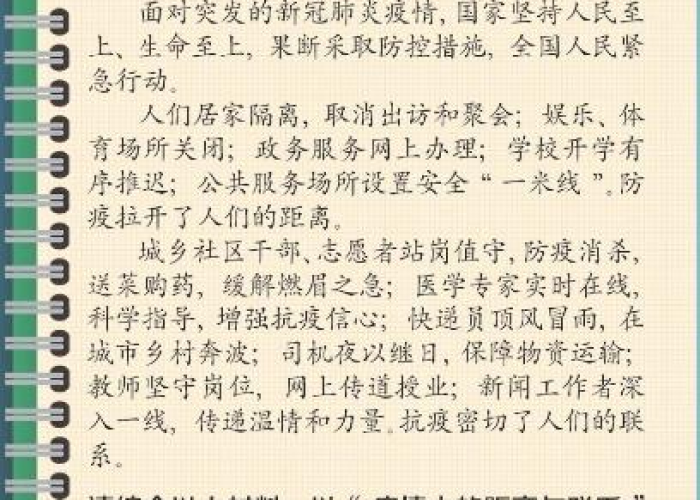 面对突发的新冠肺炎疫情，国家坚持人民至
上、生命至上，果断采取防控措施，全国人民紧
急行动。
人们居家隔离，取消出访和聚会；娱乐、体
育场所关闭；政务服务网上办理；学校开学有
序推迟；公共服务场所设置安全“一米线”。防
疫拉开了人们的距离。
城乡社区干部、志愿者站岗值守，防疫消杀，
送菜购药，缓解燃眉之急；医学专家实时在线，
科学指导，增强抗疫信心；快递员顶风冒雨，在
城市乡村奔波；司机夜以继日，保障物资运输；
教师坚守岗位，网上传道授业；新闻工作者深
入一线，传递温情和力量。抗疫密切了人们的联
系。